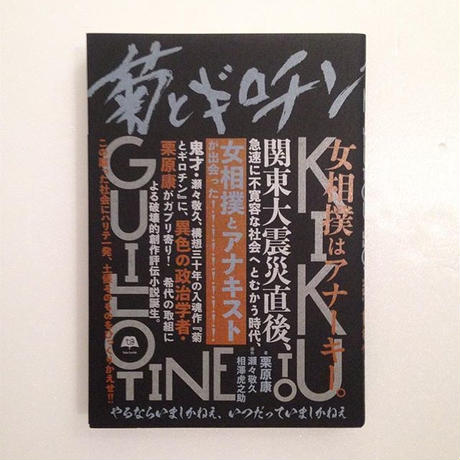 菊とギロチン
KIKU
TO
GUILLOTINE
女相撲はアナーキー。
関東大震災直後、
急速に不寛容な社会へとむかう時代、
女相撲とアナキスト
が出会った!
鬼才・瀬々敬久、構想三十年の入魂作『菊
とギロチン』に、異色の政治学者・
栗原康がガブリ寄り! 希代の取組に
よる破壊的創作評伝小説誕生。
栗原康
瀬々敬久
相澤虎之助
やるならいましかねえ、いつだっていましかねえ